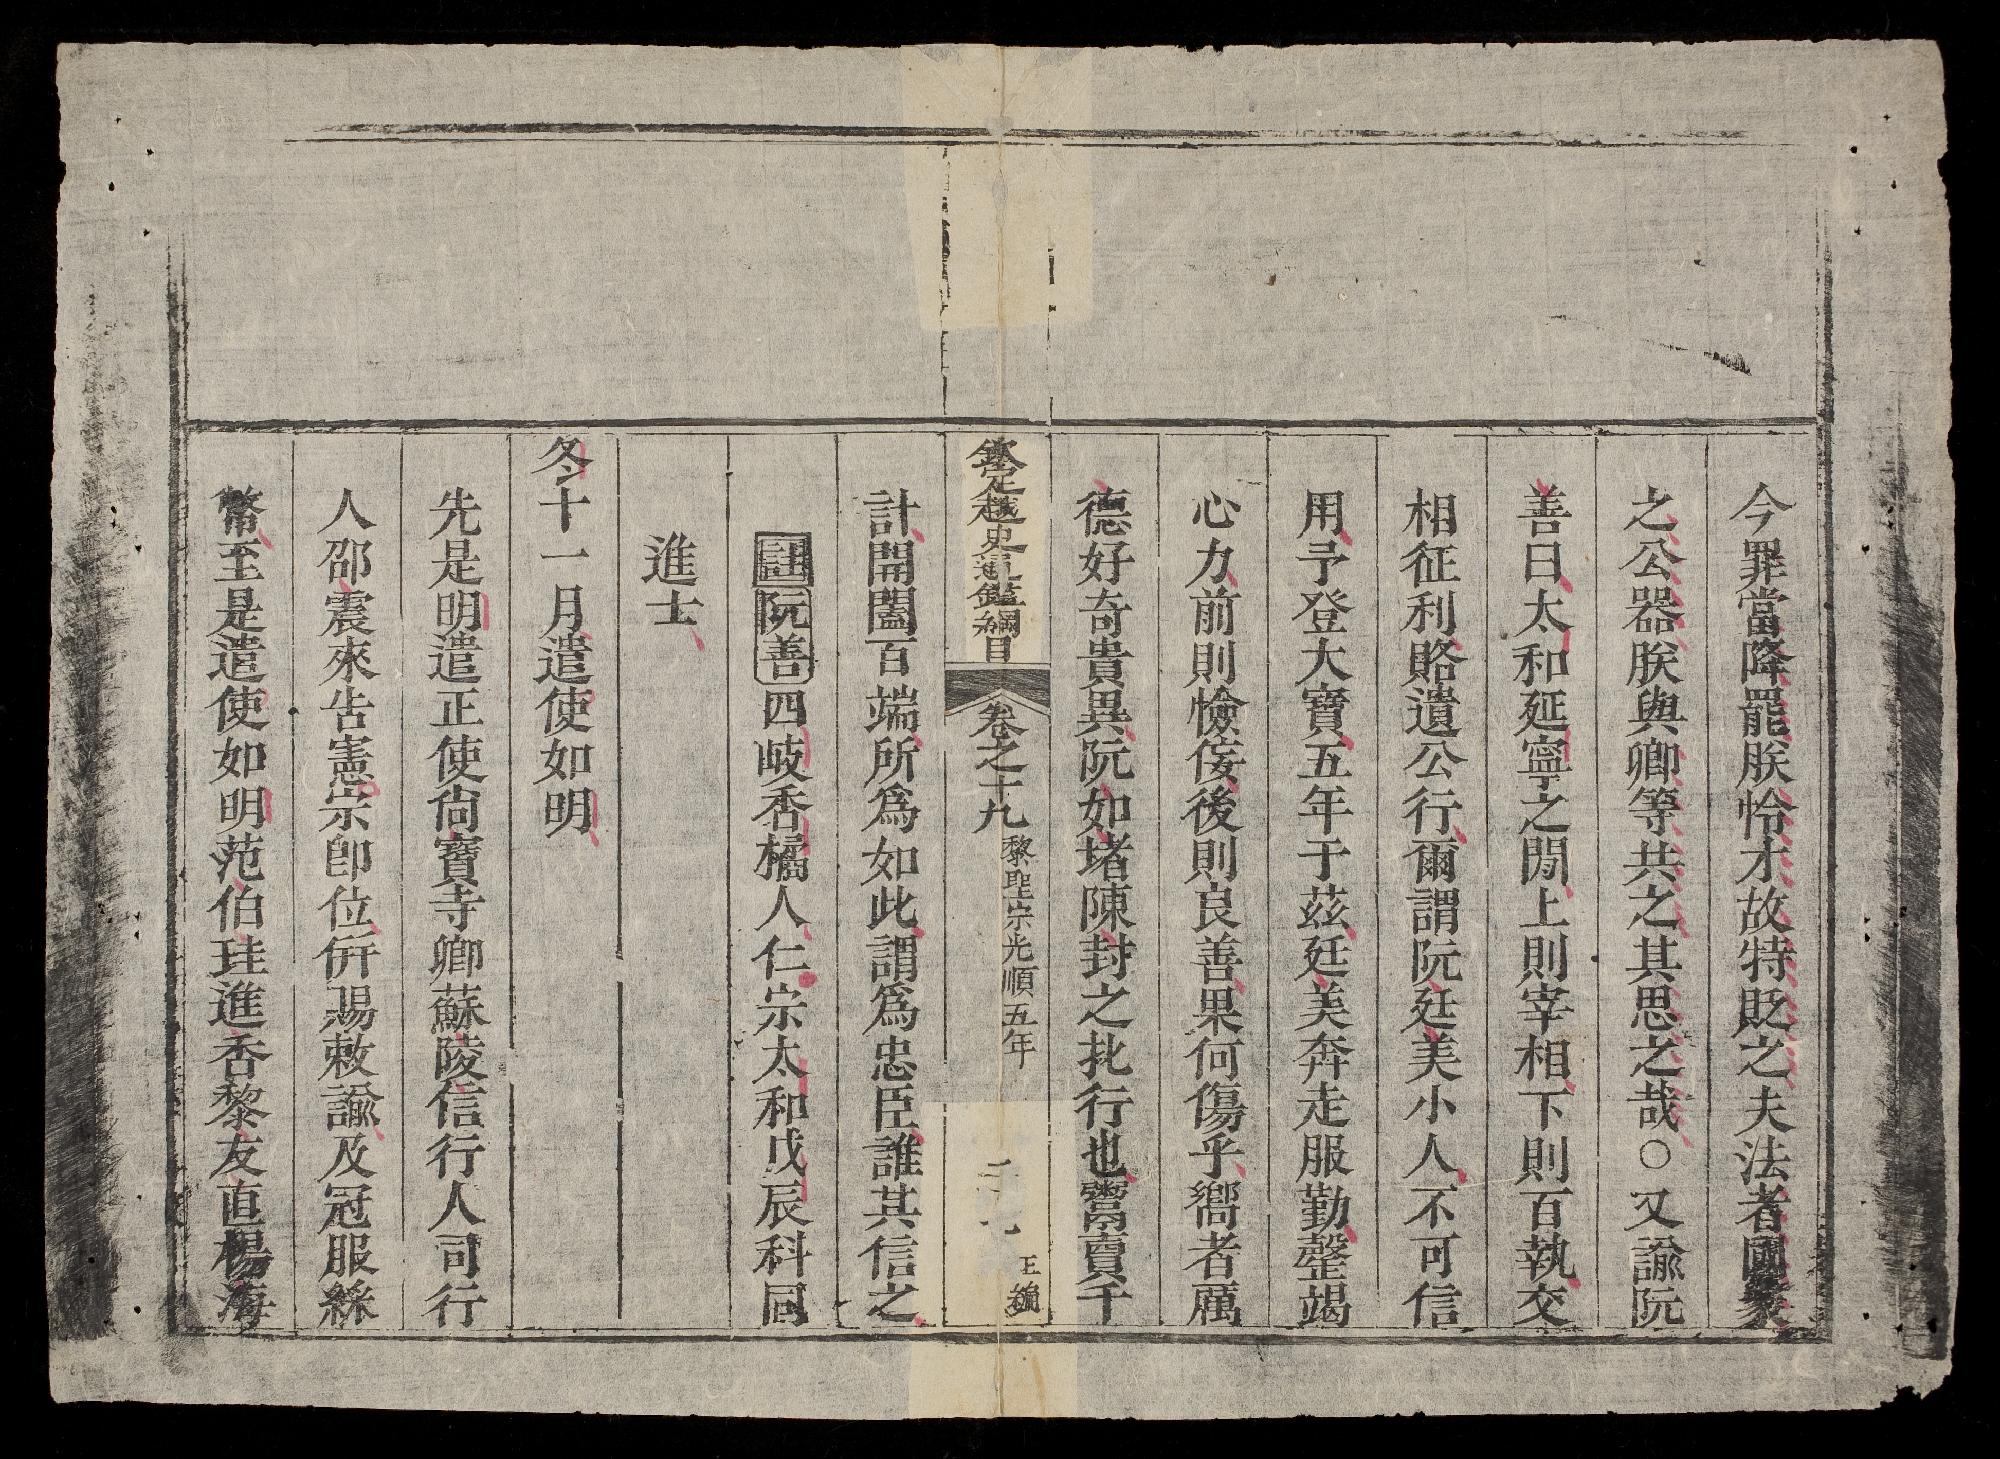 今罪當降罷朕怜才故特貶之夫法者國家
之公器朕與卿等共之其思之哉○又諭阮
善曰太和延寧之間上則宰相下則百執交
相征利賂遺公行爾謂阮廷美小人不可信
用予登大寶五年于茲廷美奔走服勤罄竭
心力前則憸佞後則良善果何傷乎嚮者厲
德好奇貴異阮如堵陳封之批行也鬻賣千
欽定越史通鑑綱目 卷之十九 黎聖宗光順五年
計開闔百端所爲如此謂爲忠臣誰其信之
註阮善四岐香橘人仁宗太和戊辰科同
進士
冬十一月遣使如明
先是明遣正使尚寶寺卿蘇陵信行人司行
人邵震來告憲宗卽位併賜敕諭及冠服綵
幣至是遣使如明范伯珪進香黎友直楊海